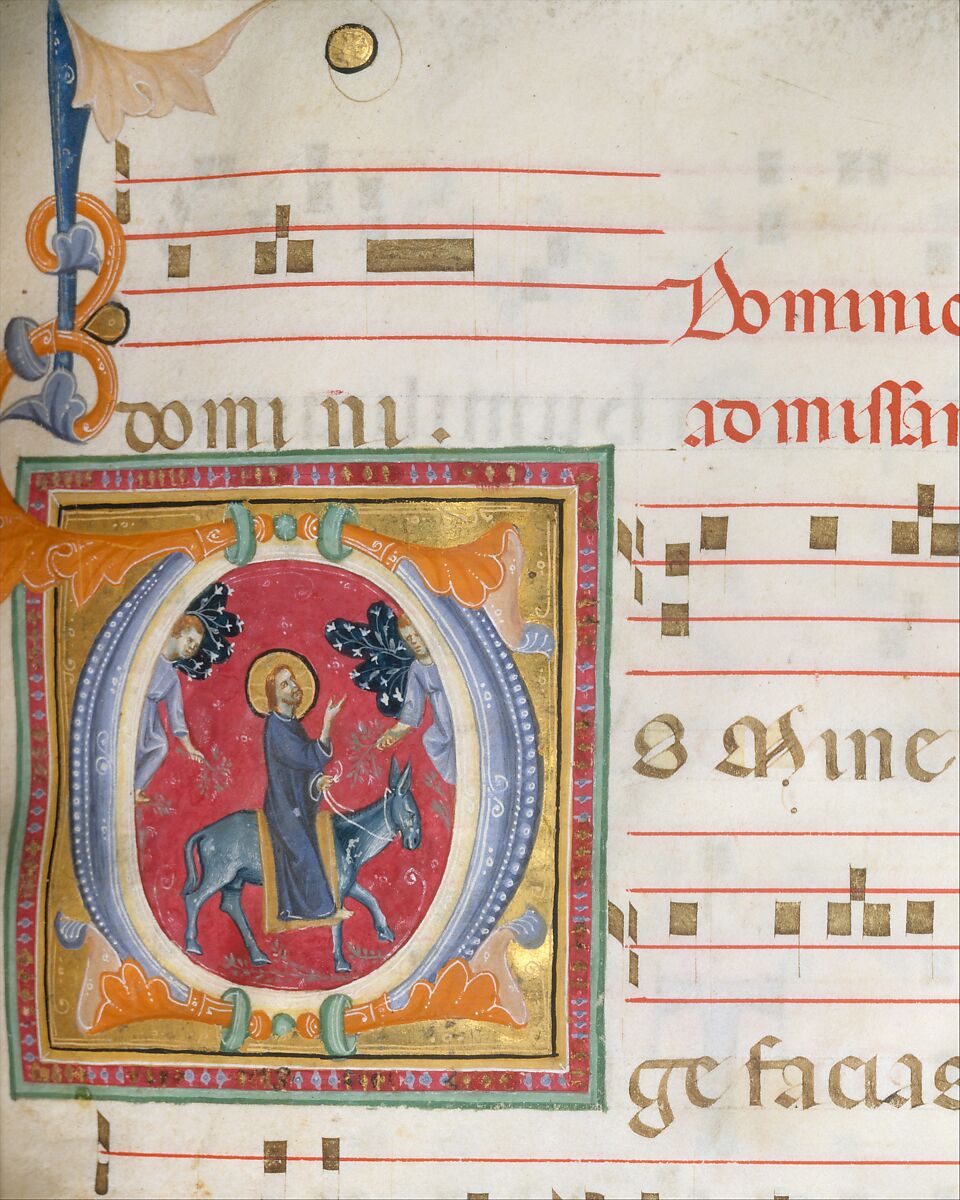 Dominic
domini. ad missam
Mine
ge facias